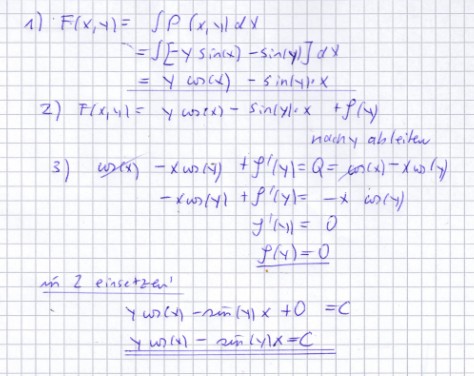 1) F(x,y) = ∫P(x,y)dx
= ∫[-y sin(x) - sin(y)] dx
= y cos(x) - sin(y)·x
2) F(x,y) = y cos(x) - sin(y)·x + f(y)
nach y ableiten
3) cos(x) - x cos(y) + f'(y) = Q = cos(x) - x cos(y)
-x cos(y) + f'(y) = -x cos(y)
f'(y) = 0
f(y) = 0
in 2 einsetzen!
y cos(x) - sin(y) x + 0 = C
y cos(x) - sin(y)x = C